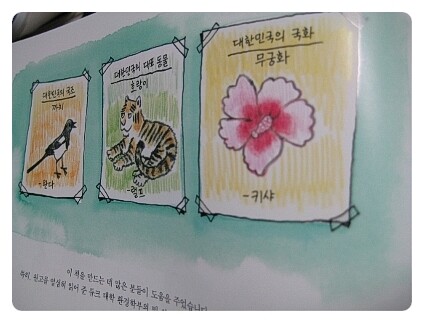 대한민국의 국조
까치
-판다
대한민국의 대표 동물
호랑이
-램프
대한민국의 국화
무궁화
-키샤
이 책을 만드는 데 많은 분들이 도움을 주었습니다
특히, 원고를 성실히 읽어 준 듀크 대학 환경학부의